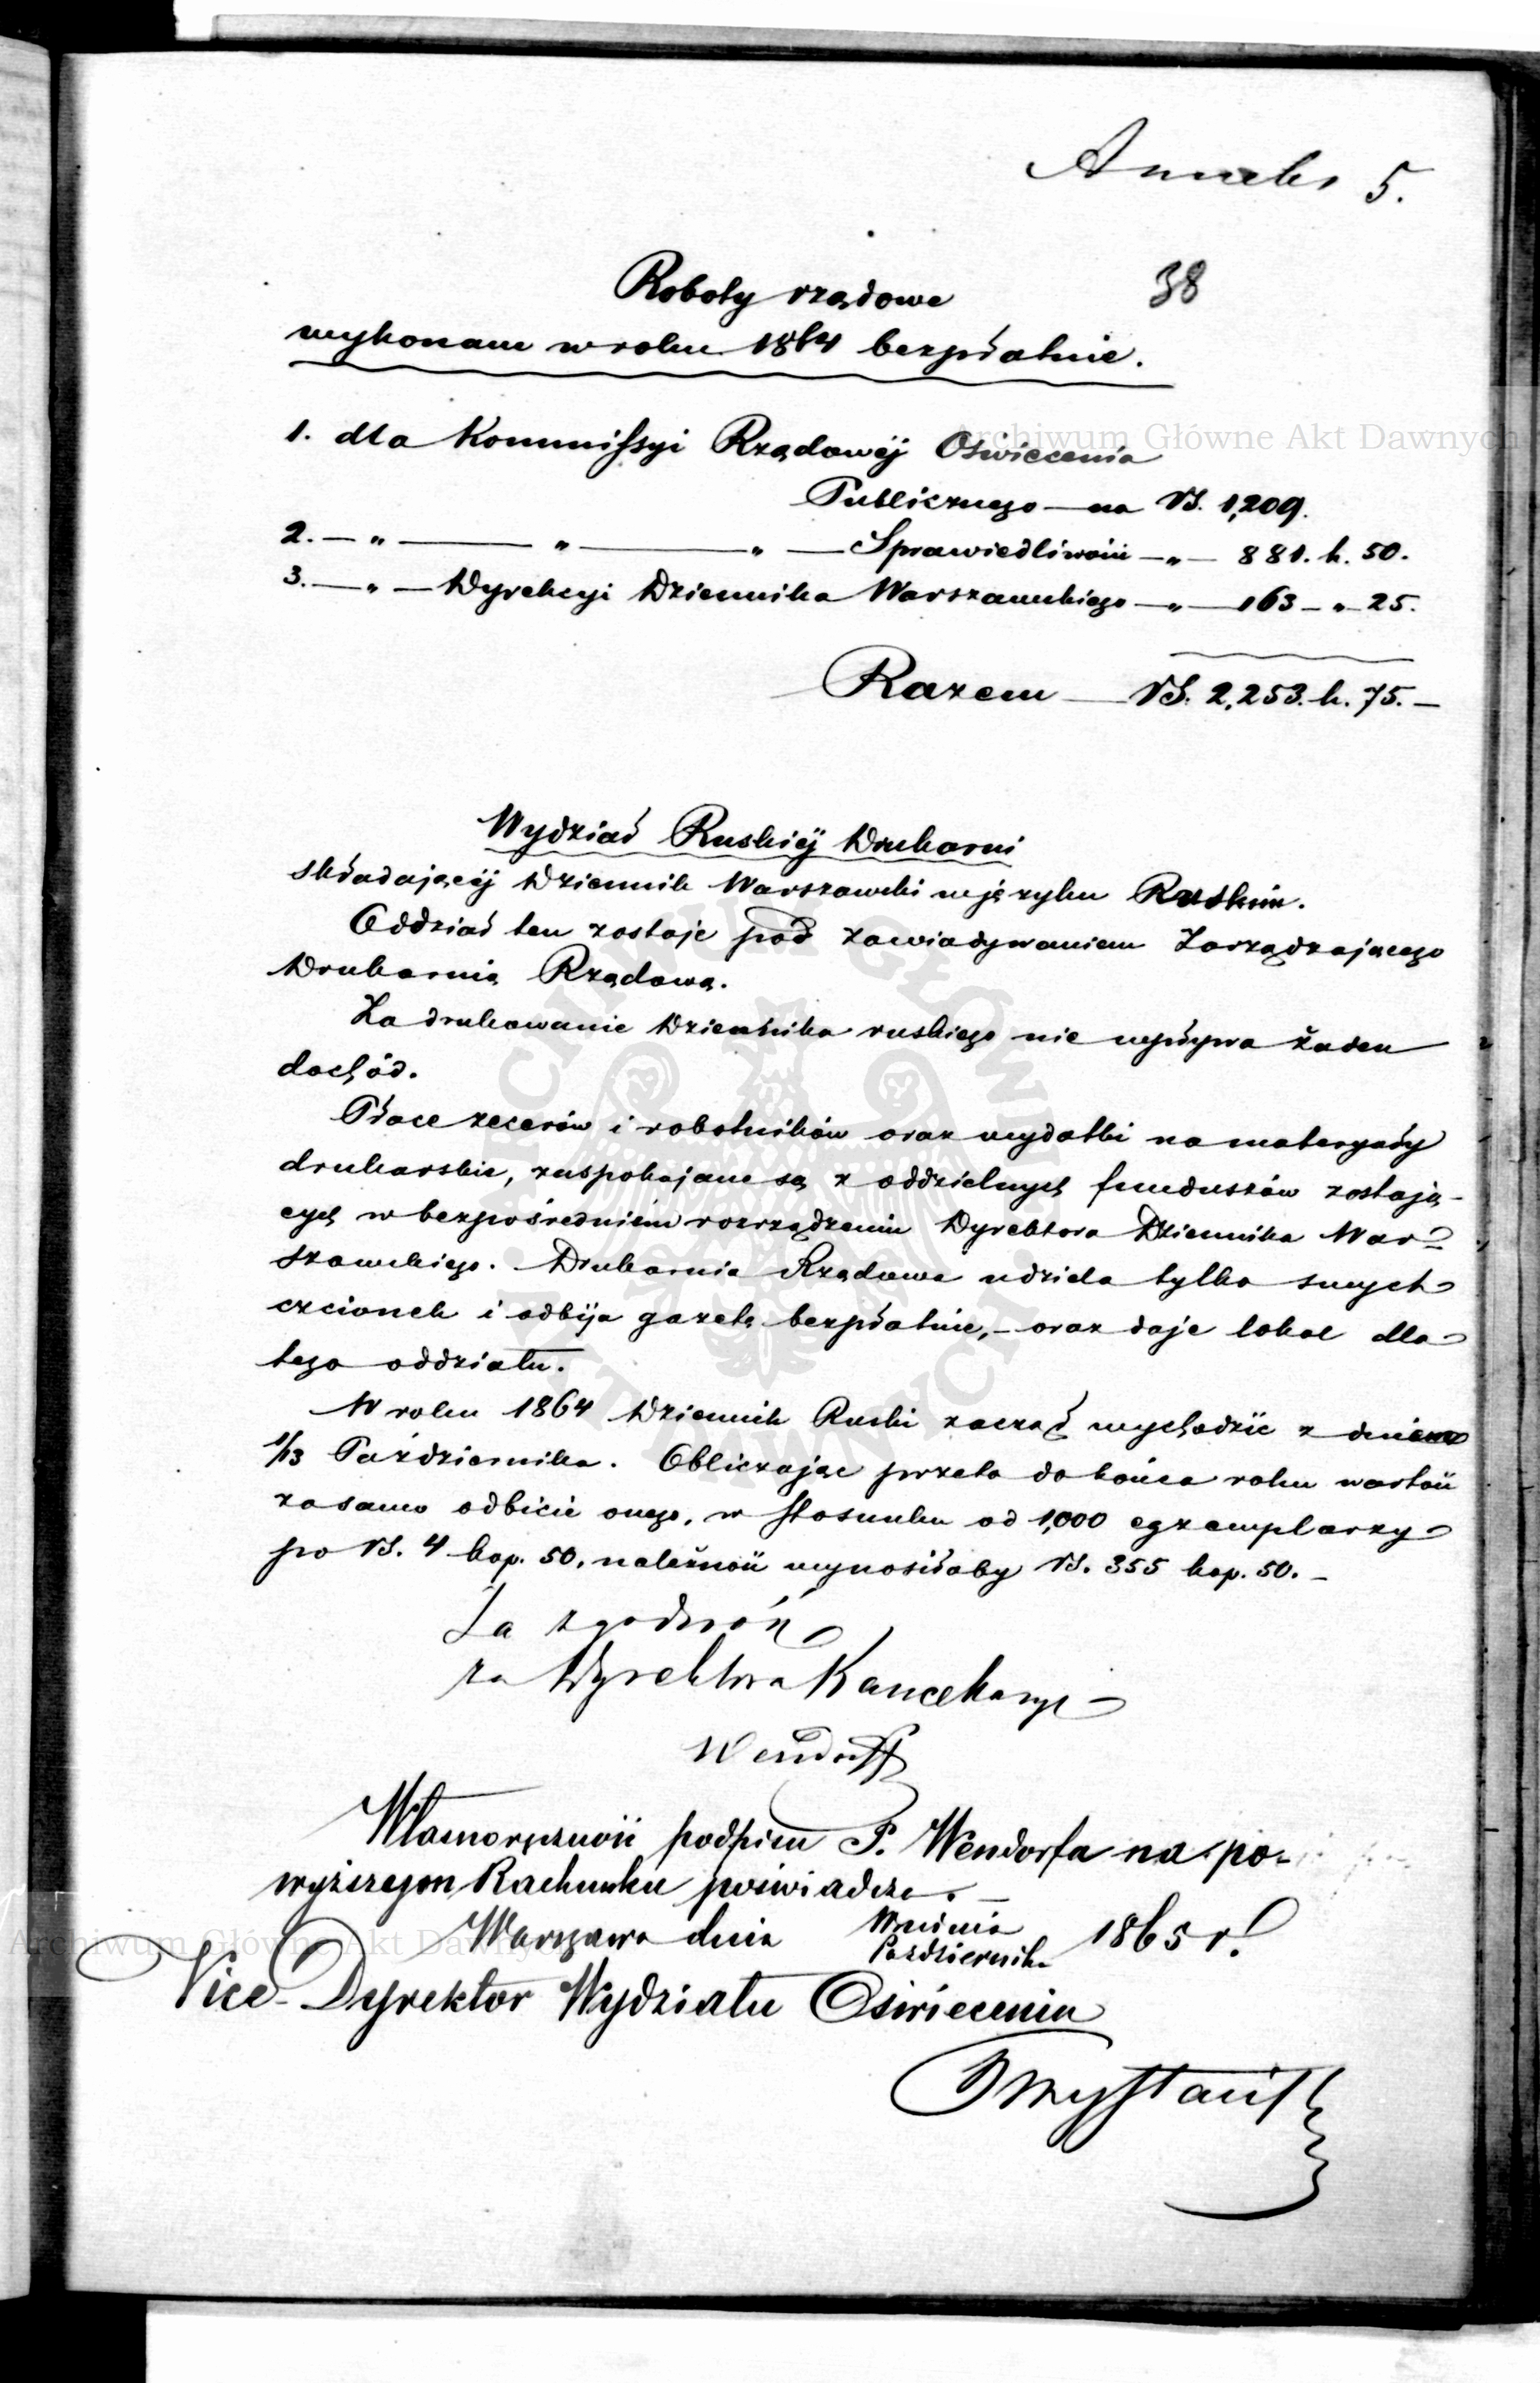 Anneks 5.
38
Roboty rządowe
wykonane w roku 1864 bezpłatnie.
1. dla Kommissyi Rządowéj Oświecenia
Publicznego — na Rs. 1,209.
2. — „ — „ — „ — Sprawiedliwości — „ — 881. k. 50.
3. — „ — Dyrekcyi Dziennika Warszawskiego — „ — 163 — „ — 25.
Razem — Rs. 2,253. k. 75. —
Wydział Ruskiéj Drukarni
składającéj Dziennik Warszawski w języku Ruskim.
Oddział ten zostaje pod zawiadywaniem Zarządzającego
Drukarnią Rządową.
Za drukowanie Dziennika ruskiego nie wpływa żaden
dochód.
Płace zecerów i robotników oraz wydatki na materyały
drukarskie, zaspokajane są z oddzielnych funduszów zostają-
cych w bezpośredniém rozrządzeniu Dyrektora Dziennika War-
szawskiego. Drukarnia Rządowa udziela tylko swych
czcionek i odbija gazetę bezpłatnie, — oraz daje lokal dla
tego oddziału.
W roku 1864 Dziennik Ruski zaczął wychodzić z dniem
1/13 Października. Obliczając przeto do końca roku wartość
za samo odbicie onego, w stosunku od 1,000 egzemplarzy
po Rs. 4 kop. 50. należność wynosiłaby Rs. 355 kop. 50. —
Za zgodność
za Dyrektora Kancellaryi
Wendorff
Własnoręczność podpisu P. Wendorfa na po-
wyższym Rachunku poświadcza. —
Warszawa dnia Września
Października 1865 r.
Vice-Dyrektor Wydziału Oświecenia
Archiwum Główne Akt Dawnych
Archiwum Główne Akt Dawnych
ARCHIWUM GŁÓWNE AKT DAWNYCH